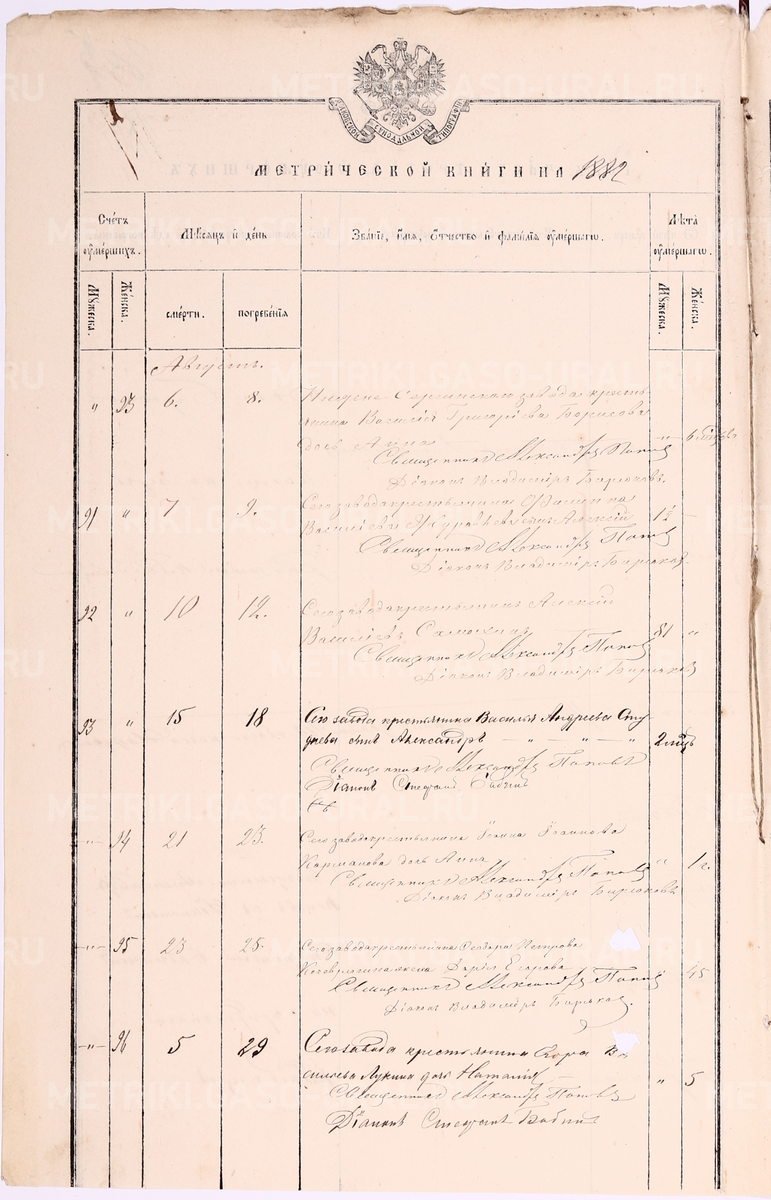 МЕТРИЧЕСКОЙ КНИГИ НА 1882
Счетъ умершихъ.
Мѣсяцъ и день
Званіе, имя, отчество и фамилія умершаго.
Лѣта умершаго.
Мужеска.
Женска.
смерти.
погребенія
Мужеска.
Женска.
Августъ.
" 93 6. 8. завода кресть
янина Василія Григорьева Борисова
дочь Анна " 6
Священникъ Александръ Поповъ
Діаконъ Владиміръ Бирюковъ.
91 " 7 9. Сего завода крестьянина
Василіева сынъ Алексій 1½ –
Священникъ Александръ Поповъ
Діаконъ Владиміръ Бирюковъ.
92 " 10 12. Сего завода крестьянинъ Алексій
Василіевъ 81 "
Священникъ Александръ Поповъ
Діаконъ Владиміръ Бирюковъ
93 " 15 18 Сего завода крестьянина Василья Андреева Сту
днева сынъ Александръ – " – " – " 2 мѣс.
Священникъ Александръ Поповъ
Діаконъ Стефанъ Бабинъ
" 94 21 23. Сего завода крестьянина Іоаннова
Карманова дочь Анна " 1 г.
Священникъ Александръ Поповъ
Діаконъ Владиміръ Бирюковъ
" 95 23 25. Сего завода крестьянина Ѳеодора Петрова
жена Дарья Егорова " 45
Священникъ Александръ Поповъ
Діаконъ Владиміръ Бирюковъ.
" 96 5 29 Сего завода крестьянина Егора Ва
сильева Лукина дочь Наталія " 5
Священникъ Александръ Поповъ
Діаконъ Стефанъ Бабинъ
METRIKI.GASO-URAL.RU